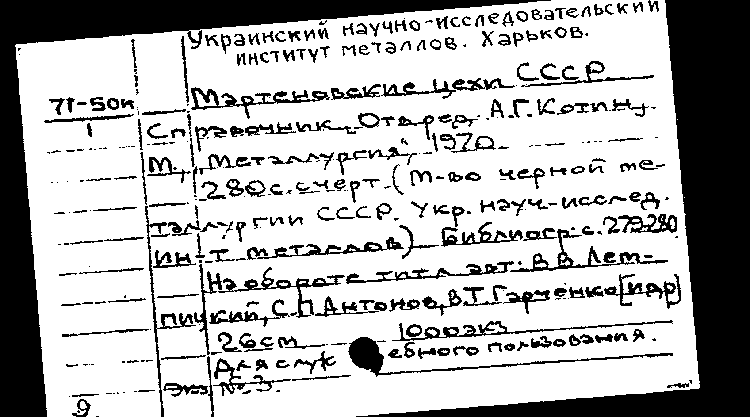 Украинский научно-исследовательский
институт металлов. Харьков.
Мартеновские цехи СССР.
71-50к
1
Справочник. Отв. ред. А.Г. Котин.
М., "Металлургия", 1970.
280с. с черт. (М-во черной ме-
таллургии СССР. Укр. науч-исслед.
ин-т металлов) Библиогр: с. 279-280
На обороте тит. л. авт: В.В. Леп-
пицкий, С.П. Антонов, В.Т. Гарченко [и др]
26см 1000экз
Для служебного пользования.
Экз. № 3.
9.